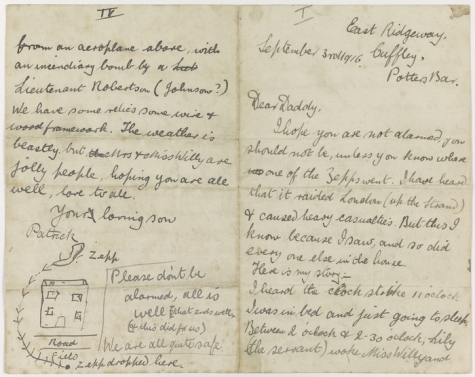 I
East Ridgeway.
Cuffley,
September 3rd 1916.
Potters Bar.
Dear Daddy,
I hope you are not alarmed, you
should not be, unless you know where
one of the Zepps went. I have heard
that it raided London (up the Strand)
& caused heavy casualties. But this I
know because I saw, and so did
every one else in the house.
Here is my story:-
I heard the clock strike 11 o'clock
I was in bed and just going to sleep.
Between 2 o'clock & 2-30 o'clock, Lily
(the servant) woke Miss Willy and
IV
from an aeroplane above, with
an incendiary bomb by a
Lieutenant Robertson (Johnson?)
We have some relics some wire &
wood framework. The weather is
beastly but Mrs & Miss Willy are
jolly people, hoping you are all
well, love to all.
Your loving son
Patrick
Zepp
Please don't be
alarmed, all is
well that ends well
(& this did for us)
We are all quite safe
Road
Field
Zepp dropped here.